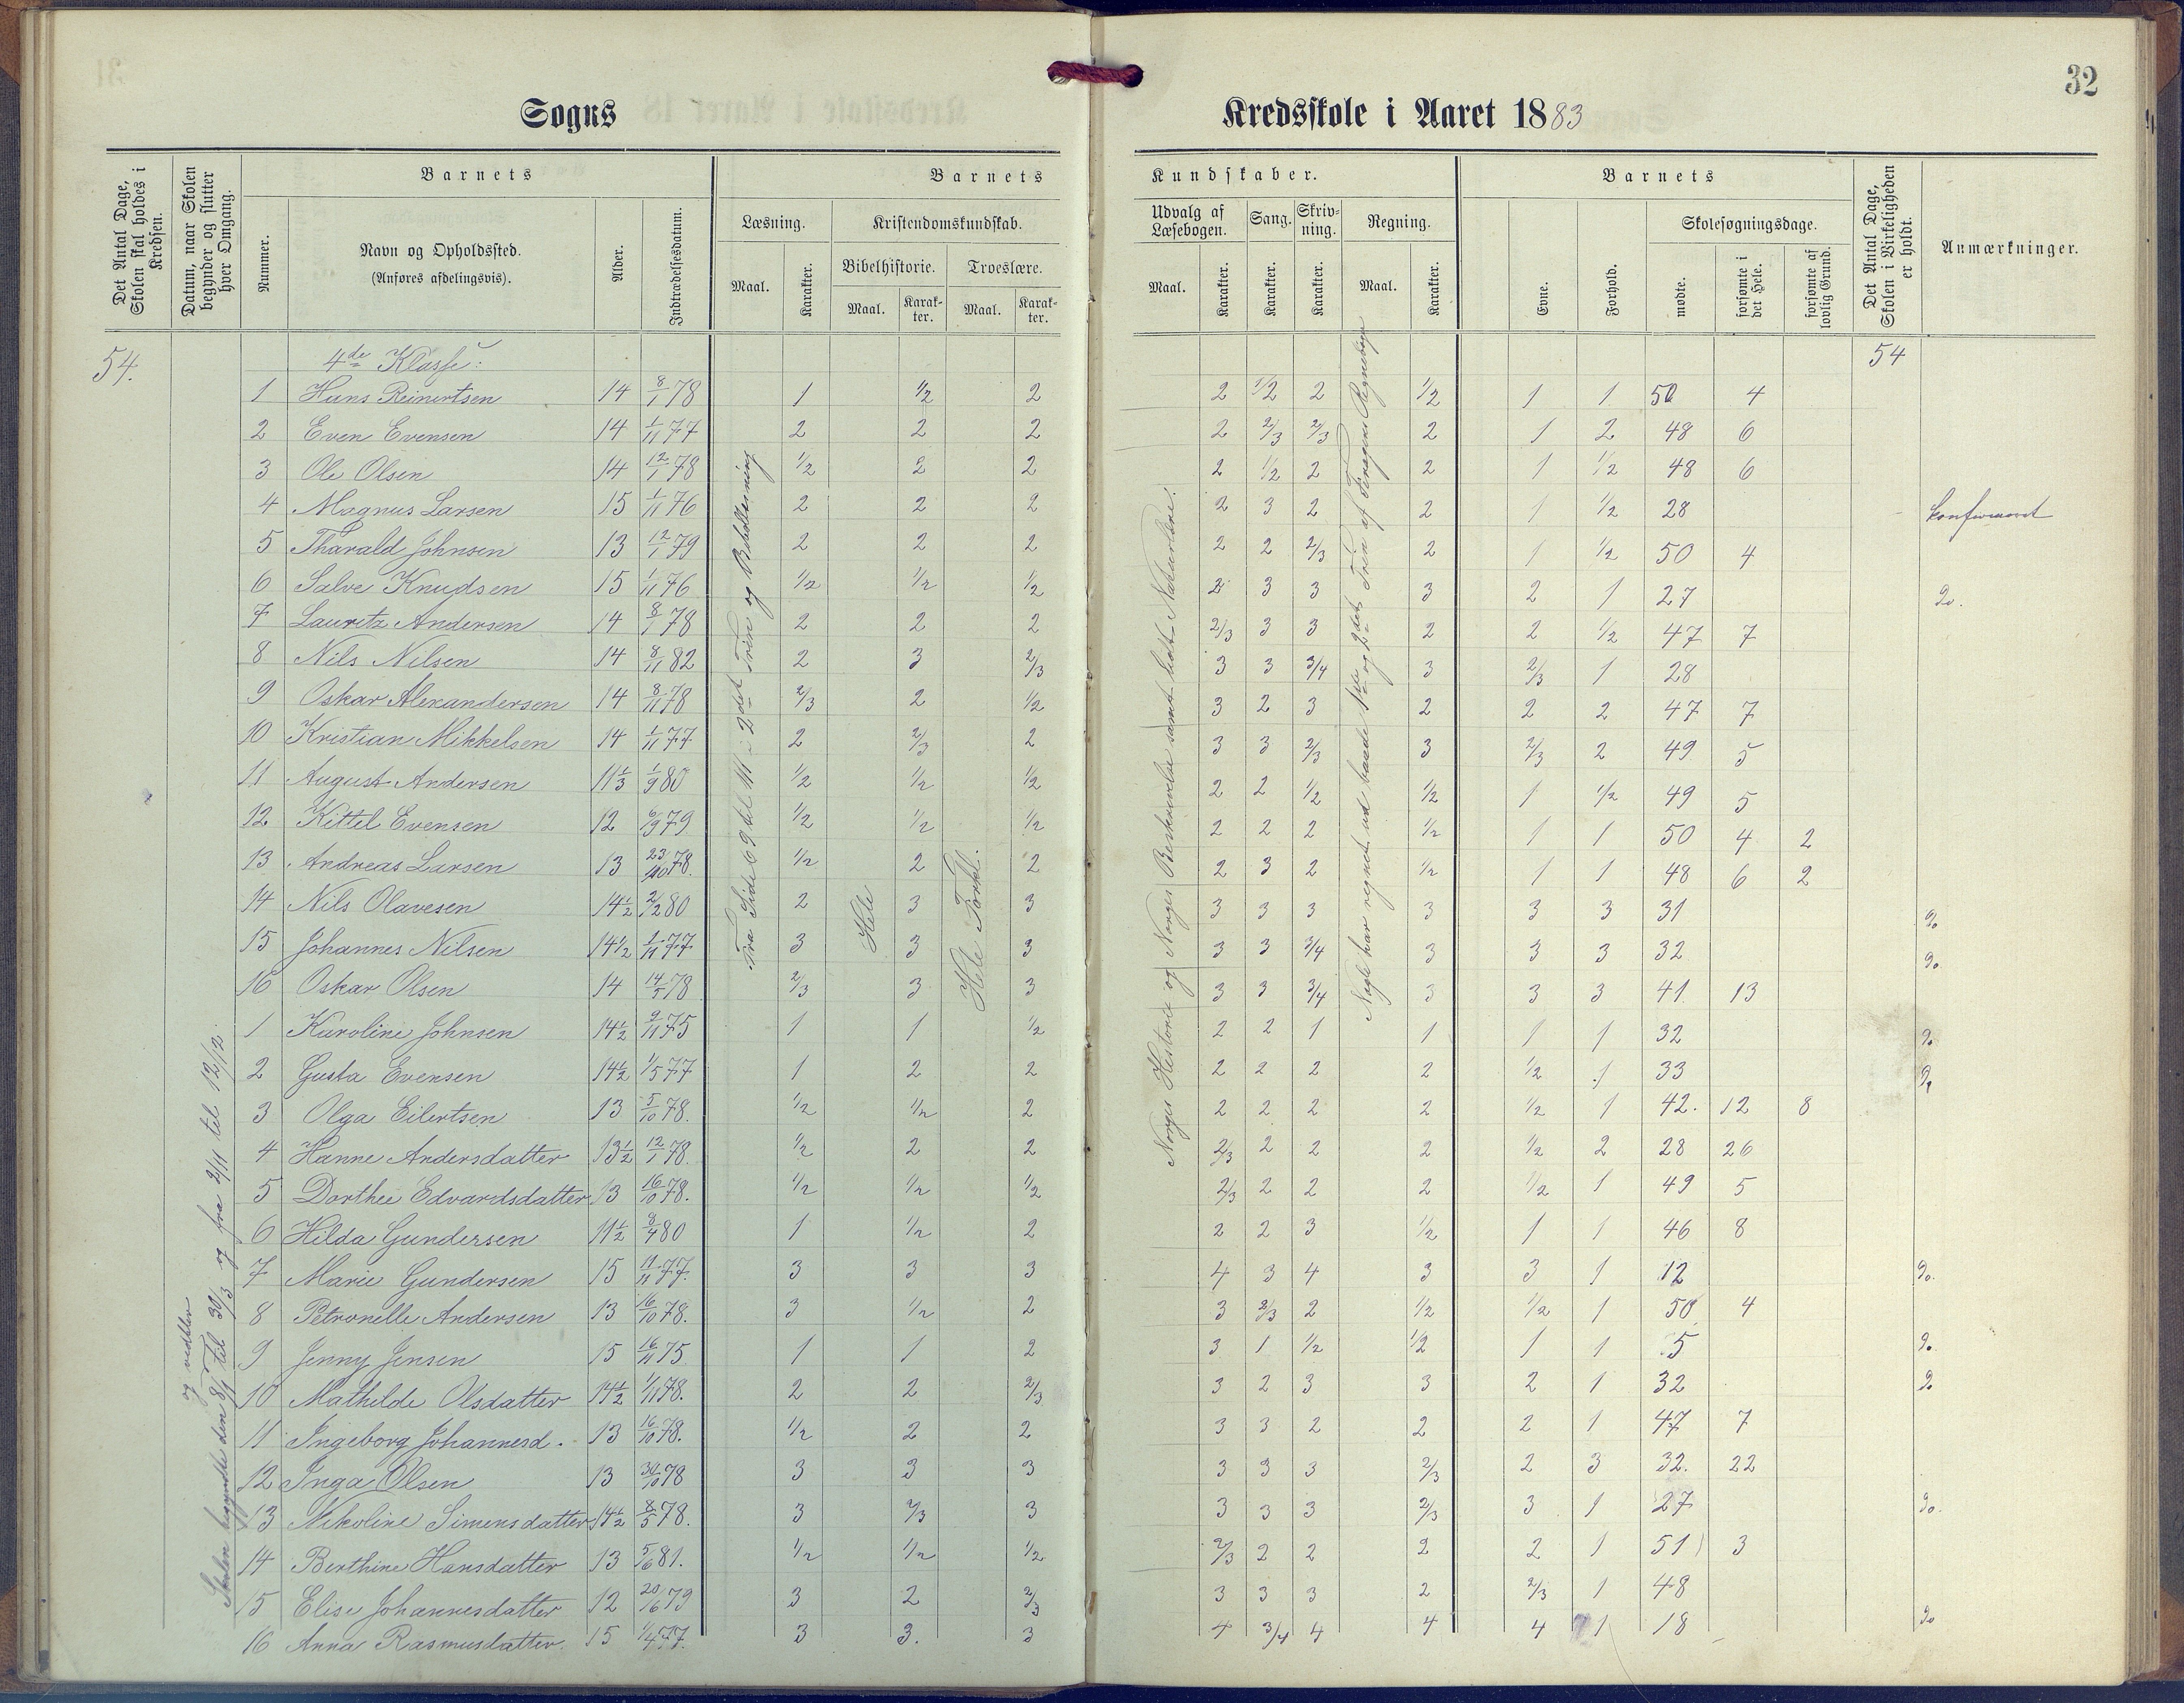 32
Sogns Kredsskole i Aaret 1883
Det Antal Dage, Skolen skal holdes i Kredsen.
Datum, naar Skolen begynder og slutter hver Omgang.
Barnets
Nummer.
Navn og Opholdssted.
(Anføres afdelingsvis).
Alder.
Indtrædelsesdatum.
Barnets Kundskaber.
Læsning. Maal. Karakter.
Kristendomskundskab.
Bibelhistorie. Maal. Karakter.
Troeslære. Maal. Karakter.
Udvalg af Læsebogen. Maal. Karakter.
Sang. Karakter.
Skrivning. Karakter.
Regning. Maal. Karakter.
Barnets
Evne.
Forhold.
Skolesøgningsdage.
mødte.
forsømte i det Hele.
forsømte af lovlig Grund.
Det Antal Dage, Skolen i Virkeligheden er holdt.
Anmærkninger.
54. 4de Klasse: 54
1 Hans Reinertsen 14 8/1 78 1 1/2 2 2 1/2 2 1/2 1 1 50 4
2 Even Evensen 14 1/11 77 2 2 2 2 2/3 2/3 2 1 2 48 6
3 Ole Olsen 14 12/1 78 1/2 2 2 2 1/2 2 2 1 1/2 48 6
4 Magnus Larsen 15 1/11 76 2 2 2 2 3 2 2 1 1/2 28 konfirmeret
5 Tharald Johnsen 13 12/1 79 2 2 2 2 2 2/3 2 1 1/2 50 4
6 Salve Knudsen 15 1/11 76 1/2 1/2 1/2 2 3 3 3 2 1 27 Do.
7 Lauritz Andersen 14 8/1 78 2 2 2 2/3 3 3 2 2 1/2 47 7
8 Nils Nilsen 14 8/11 82 2 3 2/3 3 3 3/4 3 2/3 1 28
9 Oskar Alexandersen 14 8/11 78 2/3 2 1/2 3 2 3 2 2 2 47 7
10 Kristian Mikkelsen 14 1/11 77 2 2/3 2 3 3 2/3 3 2/3 2 49 5
11 August Andersen 11 1/3 1/9 80 1/2 1/2 1/2 2 2 1/2 1/2 1 1/2 49 5
12 Kittel Evensen 12 6/9 79 1/2 1/2 1/2 2 2 2 1/2 1 1 50 4 2
13 Andreas Larsen 13 23/10 78. 1/2 2 2 2 3 2 1/2 1 1 48 6 2
14 Nils Olavesen 14 1/2 2/2 80 2 3 3 3 3 3 3 3 3 31 Do
15 Johannes Nilsen 14 1/2 1/11 77 3 3 3 3 3 3/4 3 3 3 32 Do.
16 Oskar Olsen 14 14/5 78 2/3 3 3 3 3 3/4 3 3 3 41 13
1 Karoline Johnsen 14 1/2 9/11 75 1 1 1/2 2 2 1 1 1 1 32 Do
2 Gusta Evensen 14 1/2 1/5 77 1 2 2 2 2 2 2 1/2 1 33 Do
3 Olga Eilertsen 13 5/10 78. 1/2 1/2 2 2 2 2 2 1/2 1 42. 12 8
4 Hanne Andersdatter 13 1/2 12/1 78. 1/2 2 2 2/3 2 2 2 1/2 2 28 26
5 Dorthee Edvardsdatter 13 16/10 78. 1/2 1/2 1/2 2/3 2 2 2 1/2 1 49 5
6 Hilda Gundersen 11 1/2 8/4 80 1 1/2 2 2 2 3 1/2 1 1 46 8
7 Marie Gundersen 15 11/11 77. 3 3 3 4 3 4 3 3 1 12 Do.
8 Petronelle Andersen 13 16/10 78. 3 1/2 2 3 2/3 2 1/2 1/2 1 50 4
9 Jenny Jensen 15 16/11 75 1 1 2 3 1 1/2 1/2 1 1 5 Do.
10 Mathilde Olsdatter 14 1/2 1/11 78. 2 2 2/3 3 2 3 3 2 1 32 Do
11 Ingeborg Johannesd. 13 16/10 78. 1/2 2 2 3 3 2 2 2 1 47 7
12 Inga Olsen 13 30/10 78 3 3 3 3 3 3 2/3 2 3 32. 22
13 Nikoline Simensdatter 14 1/2 8/5 78. 3 2/3 3 3 3 3 2/3 3 1 27 Do.
14 Berthine Hansdatter 13 5/6 81. 1/2 1/2 1/2 2/3 2 2 2 2 1 51 3
15 Elise Johannesdatter 12 20/16 79 3 2 2/3 3 3 3 2 2/3 1 48
16 Anna Rasmusdatter. 15 1/4 77. 3 3. 3 4 3/4 4 4 4 1 18 Do
og vedblev
Skolen begyndte den 8/1 til 30/3 og fra 2/11 til 12/12.
Fra Side 69 til 111 i 2det Trin og Bibellæsning
Hele
Hele Forkl.
Norges Historie og Norges Beskrivelse samt lidt Naturlære.
Nogle har regnet ud baade 1ste og 2det Trin af Fengers Regnebog